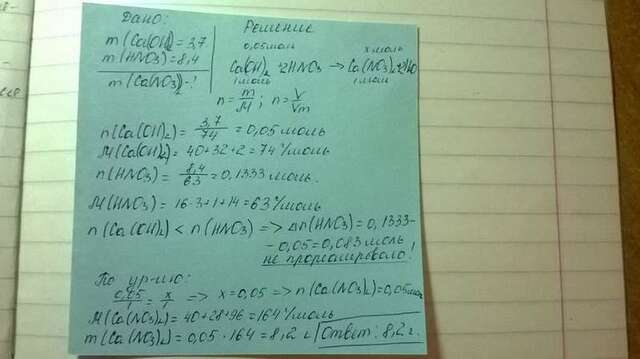 Дано:
m(Ca(OH)₂=3,7
m(HNO3)=8,4
m(Ca(NO3)₂)-?
Решение
0,05моль x моль
Ca(OH)₂ +2HNO3 → Ca(NO3)₂+2H2O
1моль 1моль
n=m/M; n=V/Vm
n(Ca(OH)₂)=3,7/74=0,05моль
M(Ca(OH)₂)=40+32+2=74г/моль
n(HNO3)=8,4/63=0,1333моль.
M(HNO3)=16·3+1+14=63г/моль
n(Ca(OH)₂)<n(HNO3)=>Δn(HNO3)=0,1333-
-0,05=0,083моль
не прореагировало!
По ур-ию:
0,05/1=x/1 => x=0,05=>n(Ca(NO3)₂)=0,05моль
M(Ca(NO3)₂)=40+28+96=164г/моль
m(Ca(NO3)₂)=0,05·164=8,2г Ответ: 8,2г.